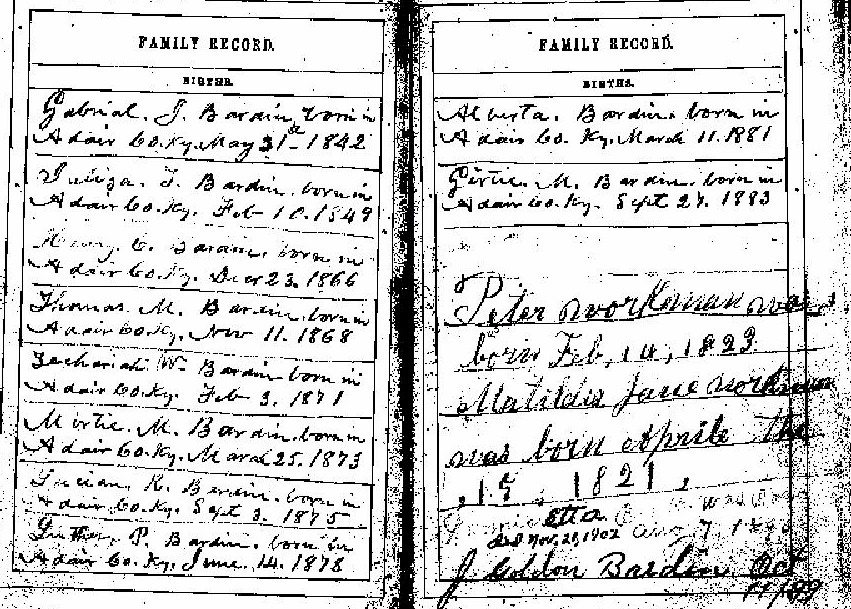 FAMILY RECORD.
BIRTHS.
Gabrial. J. Bardin, born in
Adair Co. Ky. May 31st 1842
T. Bardin. born in
Adair Co. Ky. Feb 10. 1849
Henry. C. Bardin. born in
Adair Co. Ky. Decr 23. 1866
Thomas. M. Bardin. born in
Adair Co. Ky. Nov 11. 1868
Zachariah W. Bardin born in
Adair Co. Ky. Feb 3. 1871
Mirtie. M. Bardin. born in
Adair Co. Ky. March 25. 1873
Lucian. K. Bardin. born in
Adair Co. Ky. Sept 3. 1875
Luther. P. Bardin. born in
Adair Co. Ky. June. 14. 1878
FAMILY RECORD.
BIRTHS.
Alverta. Bardin. born in
Adair Co. Ky. March 11. 1881
Girtie. M. Bardin. born in
Adair Co. Ky. Sept 27. 1883
Peter workman was
born Feb, 14, 1823
Matilda Jane workman
was born Aprile the
,15, 1821,
etta was Born
died Nov. 21, 1902 Aug 7, 18
J Goldon Bardin Oct